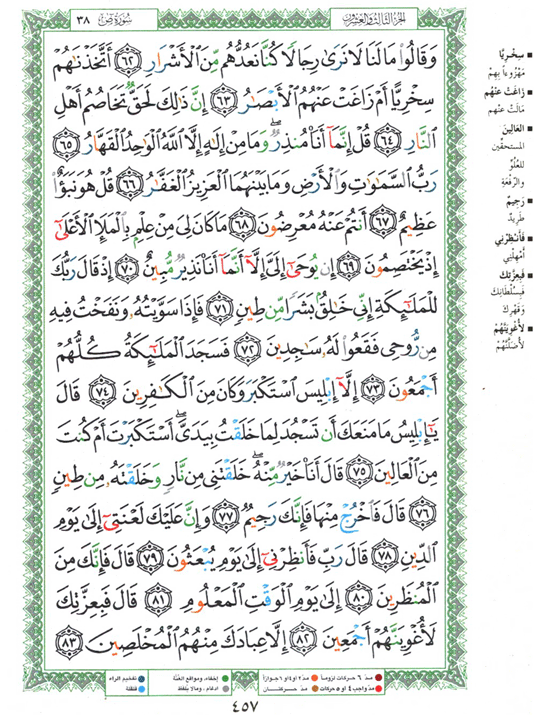 الجزء الثالث والعشرون
سورة ص ٣٨
وَقَالُوا۟ مَا لَنَا لَا نَرَىٰ رِجَالًا كُنَّا نَعُدُّهُم مِّنَ ٱلْأَشْرَارِ ٦٢ أَتَّخَذْنَٰهُمْ
سِخْرِيًّا أَمْ زَاغَتْ عَنْهُمُ ٱلْأَبْصَٰرُ ٦٣ إِنَّ ذَٰلِكَ لَحَقٌّ تَخَاصُمُ أَهْلِ
ٱلنَّارِ ٦٤ قُلْ إِنَّمَآ أَنَا۠ مُنذِرٌ وَمَا مِنْ إِلَٰهٍ إِلَّا ٱللَّهُ ٱلْوَٰحِدُ ٱلْقَهَّارُ ٦٥
رَبُّ ٱلسَّمَٰوَٰتِ وَٱلْأَرْضِ وَمَا بَيْنَهُمَا ٱلْعَزِيزُ ٱلْغَفَّٰرُ ٦٦ قُلْ هُوَ نَبَؤٌا۟
عَظِيمٌ ٦٧ أَنتُمْ عَنْهُ مُعْرِضُونَ ٦٨ مَا كَانَ لِىَ مِنْ عِلْمٍۭ بِٱلْمَلَإِ ٱلْأَعْلَىٰٓ
إِذْ يَخْتَصِمُونَ ٦٩ إِن يُوحَىٰٓ إِلَىَّ إِلَّآ أَنَّمَآ أَنَا۠ نَذِيرٌ مُّبِينٌ ٧٠ إِذْ قَالَ رَبُّكَ
لِلْمَلَٰٓئِكَةِ إِنِّى خَٰلِقٌۢ بَشَرًا مِّن طِينٍ ٧١ فَإِذَا سَوَّيْتُهُۥ وَنَفَخْتُ فِيهِ
مِن رُّوحِى فَقَعُوا۟ لَهُۥ سَٰجِدِينَ ٧٢ فَسَجَدَ ٱلْمَلَٰٓئِكَةُ كُلُّهُمْ
أَجْمَعُونَ ٧٣ إِلَّآ إِبْلِيسَ ٱسْتَكْبَرَ وَكَانَ مِنَ ٱلْكَٰفِرِينَ ٧٤ قَالَ
يَٰٓإِبْلِيسُ مَا مَنَعَكَ أَن تَسْجُدَ لِمَا خَلَقْتُ بِيَدَىَّ أَسْتَكْبَرْتَ أَمْ كُنتَ
مِنَ ٱلْعَالِينَ ٧٥ قَالَ أَنَا۠ خَيْرٌ مِّنْهُ خَلَقْتَنِى مِن نَّارٍ وَخَلَقْتَهُۥ مِن طِينٍ
٧٦ قَالَ فَٱخْرُجْ مِنْهَا فَإِنَّكَ رَجِيمٌ ٧٧ وَإِنَّ عَلَيْكَ لَعْنَتِىٓ إِلَىٰ يَوْمِ
ٱلدِّينِ ٧٨ قَالَ رَبِّ فَأَنظِرْنِىٓ إِلَىٰ يَوْمِ يُبْعَثُونَ ٧٩ قَالَ فَإِنَّكَ مِنَ
ٱلْمُنظَرِينَ ٨٠ إِلَىٰ يَوْمِ ٱلْوَقْتِ ٱلْمَعْلُومِ ٨١ قَالَ فَبِعِزَّتِكَ
لَأُغْوِيَنَّهُمْ أَجْمَعِينَ ٨٢ إِلَّا عِبَادَكَ مِنْهُمُ ٱلْمُخْلَصِينَ ٨٣
■ سِخْرِيًّا
مَهْزُوءًا بِهِمْ
■ زَاغَتْ عَنْهُم
مَالَتْ عَنْهم
■ العَالِينَ
المستحقّين
للعُلُوِّ
والرِّفْعَة
■ رَجِيمٌ
طَرِيدٌ
■ فَأَنْظِرْنِي
أَمْهِلْنِي
■ فَبِعِزَّتِكَ
فَبِسُلْطَانِكَ
وَقَهْرِكَ
■ لَأُغْوِيَنَّهُمْ
لَأُضِلَّنَّهُمْ
مدّ ٦ حركات لزوماً مدّ ٢ أو ٤ أو ٦ جوازاً إخفاء، ومواقع الغُنَّة تفخيم الراء
مدّ واجب ٤ أو ٥ حركات مدّ حركتان ادغام، وما لا يُلفَظ قلقلة
٤٥٧